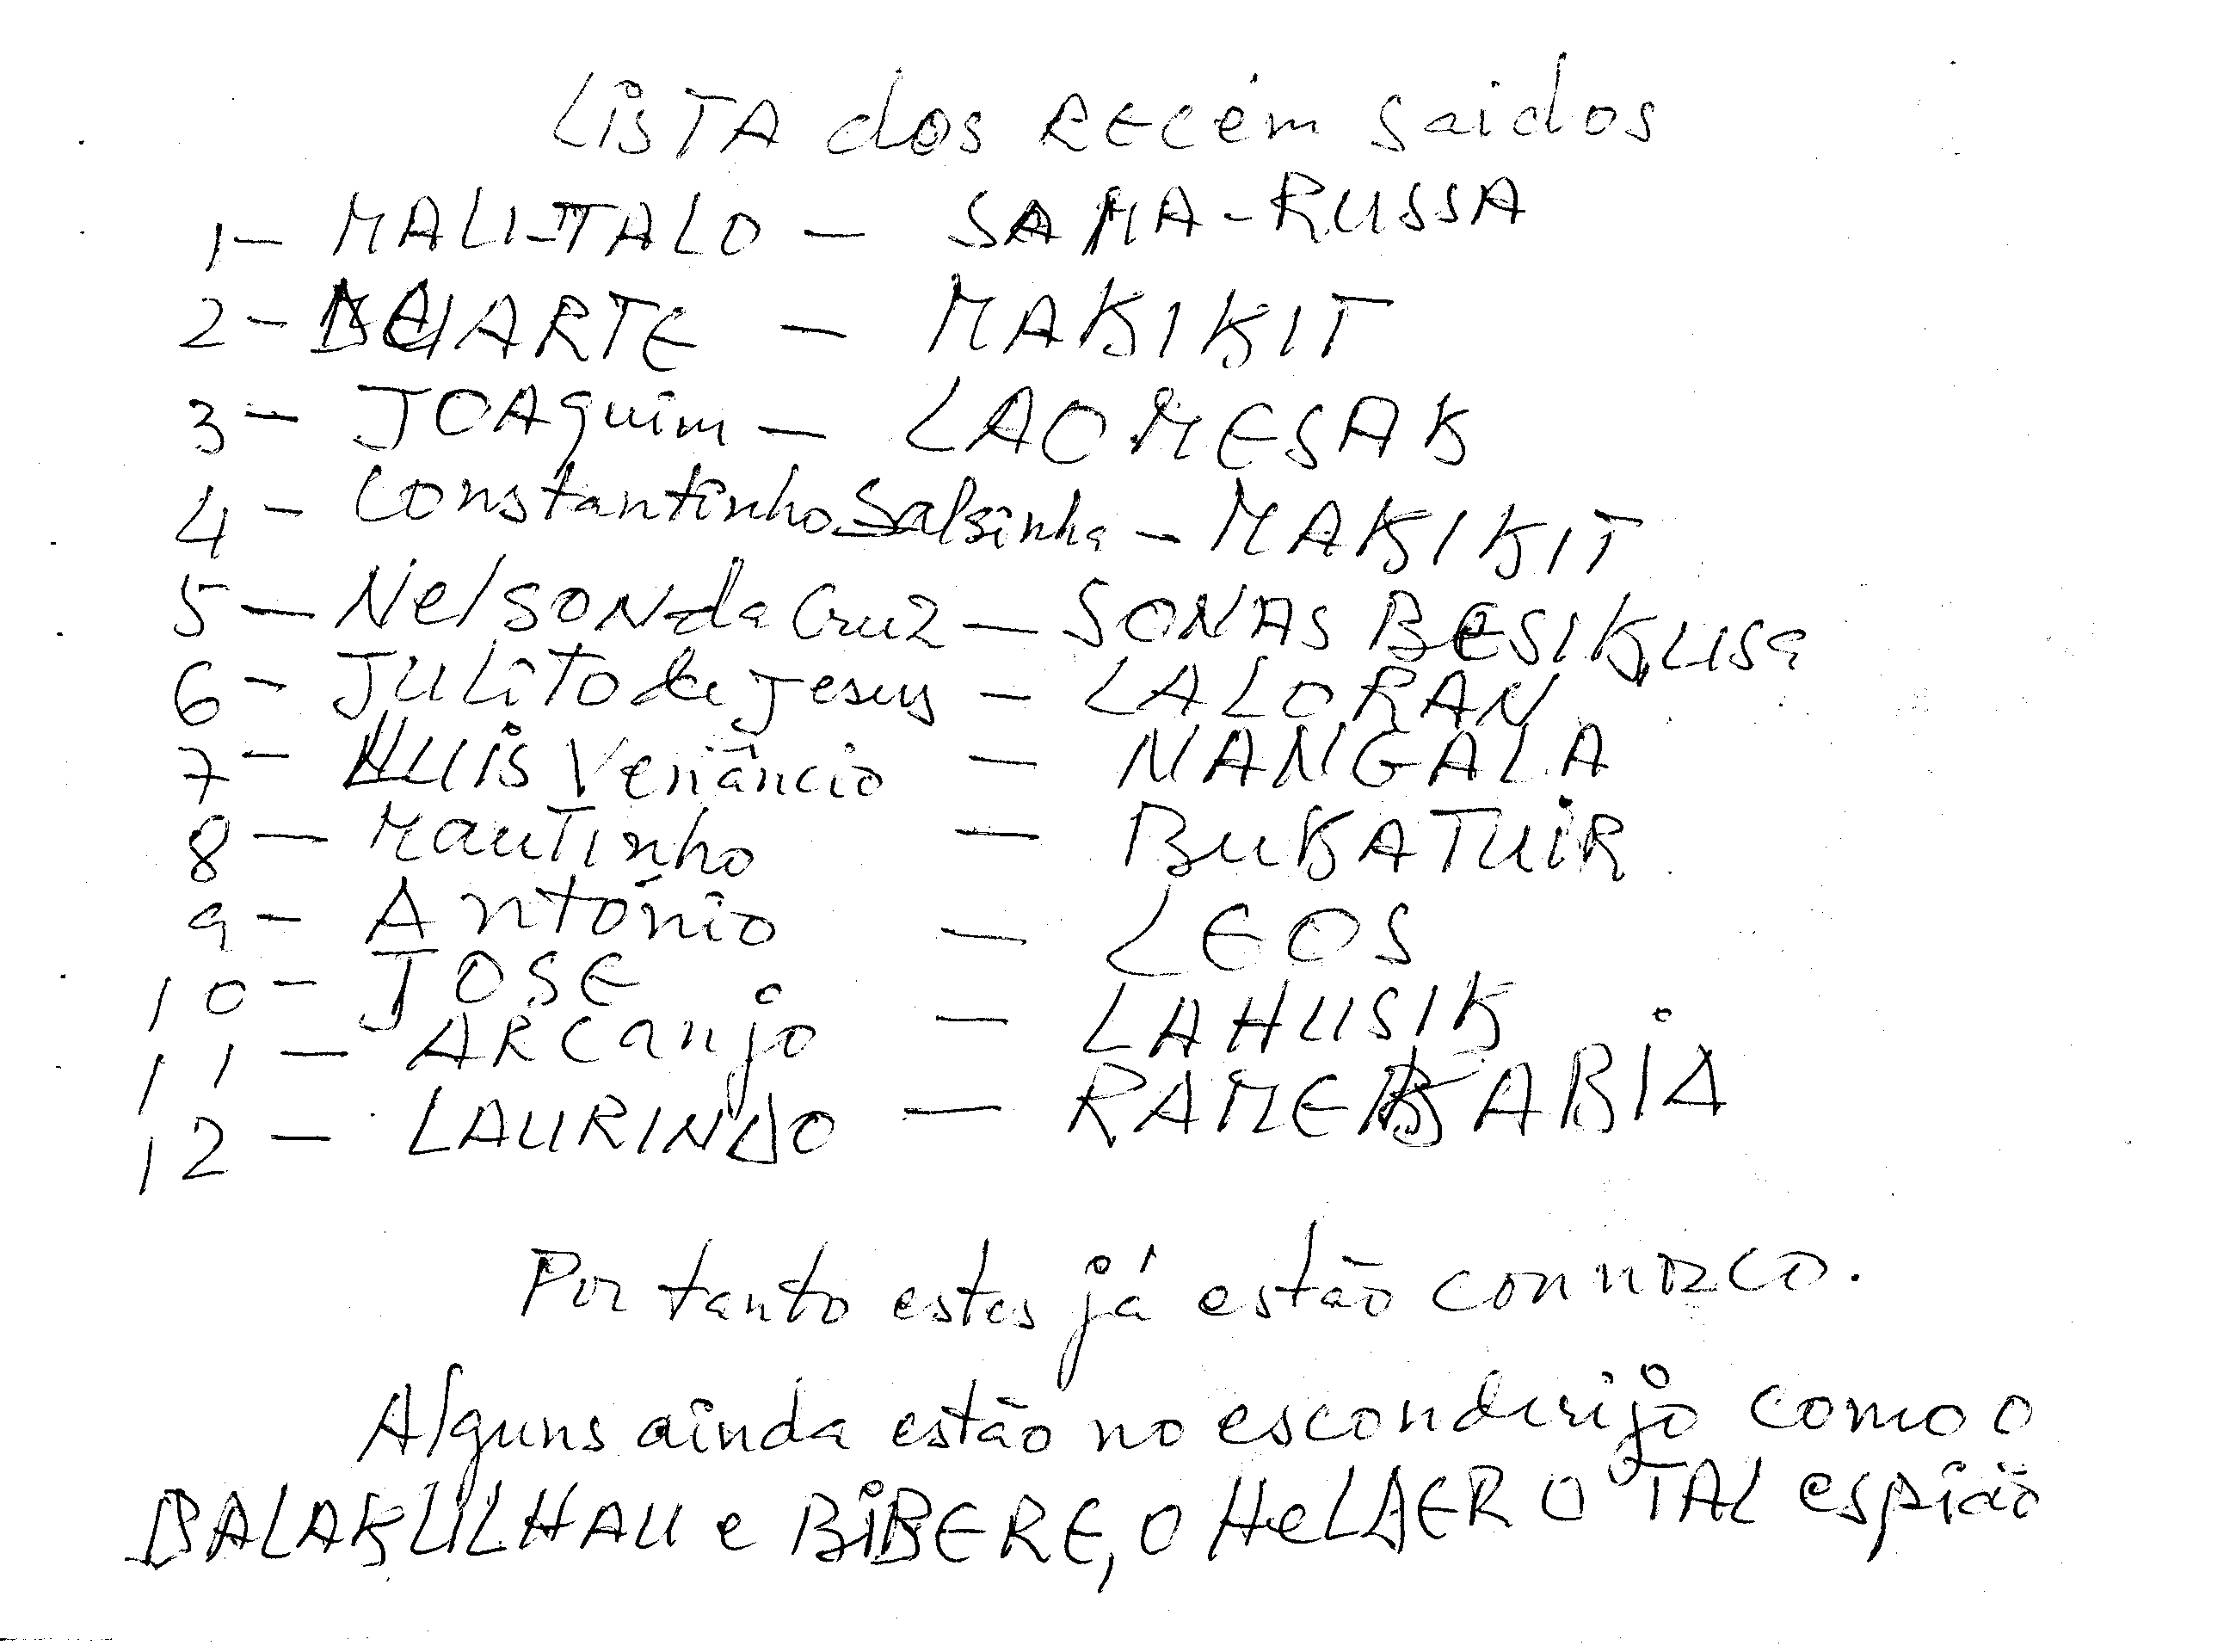 LISTA dos RECÉM Saidos
1- MALI-TALO - SAMA-RUSSA
2- DUARTE - MAKIKIT
3- JOAquim - LAOMESAK
4- Constantinho Salsinha - MAKIKIT
5- NelSON da Cruz - SONAS BESIKUSa
6- JULITO de Jesus - LALORAN
7- LUIS Venâncio - NANGALA
8- MauTinho - BUKATUIR
9- António - LEOS
10- JOSE
11- ARCanjo - LAHUSIK
12- LAURINDO - RAMEKABIA
Portanto estes já estão connosco.
Alguns ainda estão no esconderijo como o
BALAKLILHAU e BIBERE, O HeLDER O TAL espião